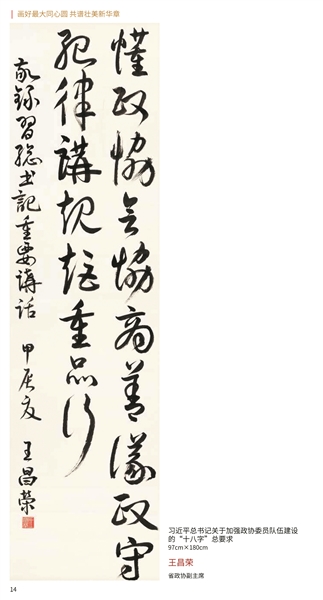 画好最大同心圆 共谱壮美新华章
懂政协会协商善议政守
纪律講规矩重品行
敬録習総书記重要講话 甲辰夏 王昌榮
习近平总书记关于加强政协委员队伍建设
的“十八字”总要求
97cm×180cm
王昌荣
省政协副主席
14